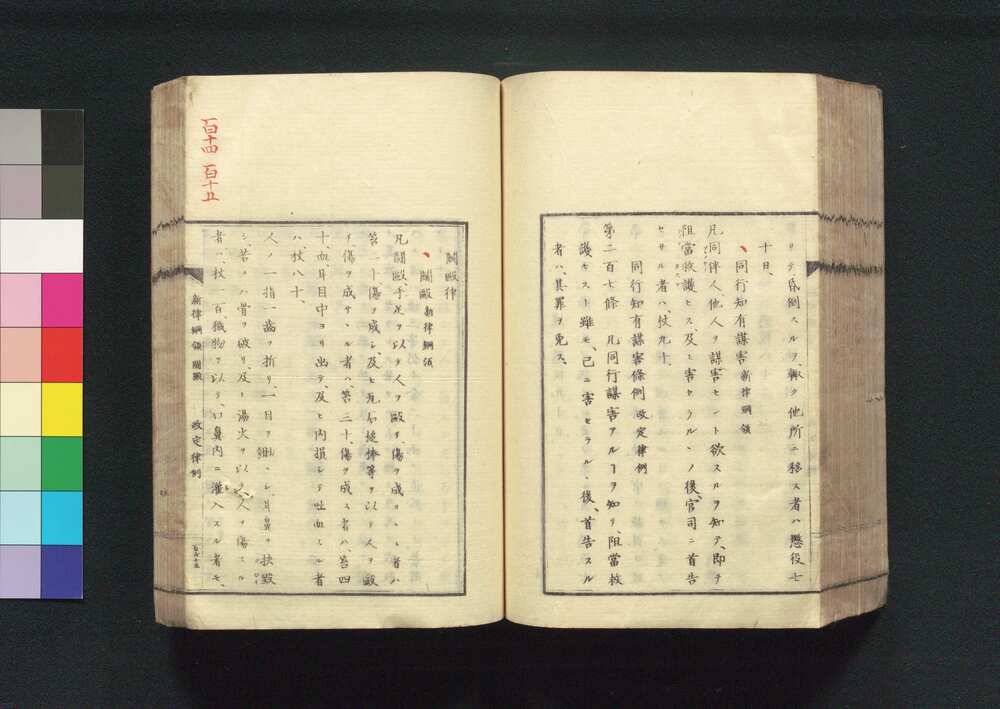 リテ、昏倒スルヲ、輙ク他所ニ移ス者ハ懲役七
十日、
同行知有謀害 新律綱領
凡同伴人、他人ヲ謀害セント欲スルヲ知テ、即チ
阻當救護セス、及ヒ害セラルヽノ後、官司ニ首告
セサル者ハ、杖九十、
同行知有謀害條例 改定律例
第二百七條 凡同行謀害アルヿヲ知リ、阻當救
護セスト雖モ、已ニ害セラルヽ後、首告スル
者ハ、其罪ヲ免ス、
百十四 百十五
鬪毆律
鬪毆 新律綱領
凡鬪毆、手足ヲ以テ人ヲ毆チ、傷ヲ成サヽル者ハ
笞二十、傷ヲ成シ、及ヒ瓦石棍棒等ヲ以テ人ヲ毆
チ、傷ヲ成サヽル者ハ、笞三十、傷ヲ成ス者ハ、笞四
十、血耳目中ヨリ出テ、及ヒ内損シテ吐血スル者
ハ、杖八十、
人ノ一指一齒ヲ折リ、一目ヲ眇ニシ、耳鼻ヲ抉毀
シ、若クハ骨ヲ破リ、及ヒ湯火ヲ以テ人ヲ傷スル
者ハ、杖一百、穢物ヲ以テ、口鼻内ニ灌入スル者モ、
新律綱領 鬪毆 改定律例